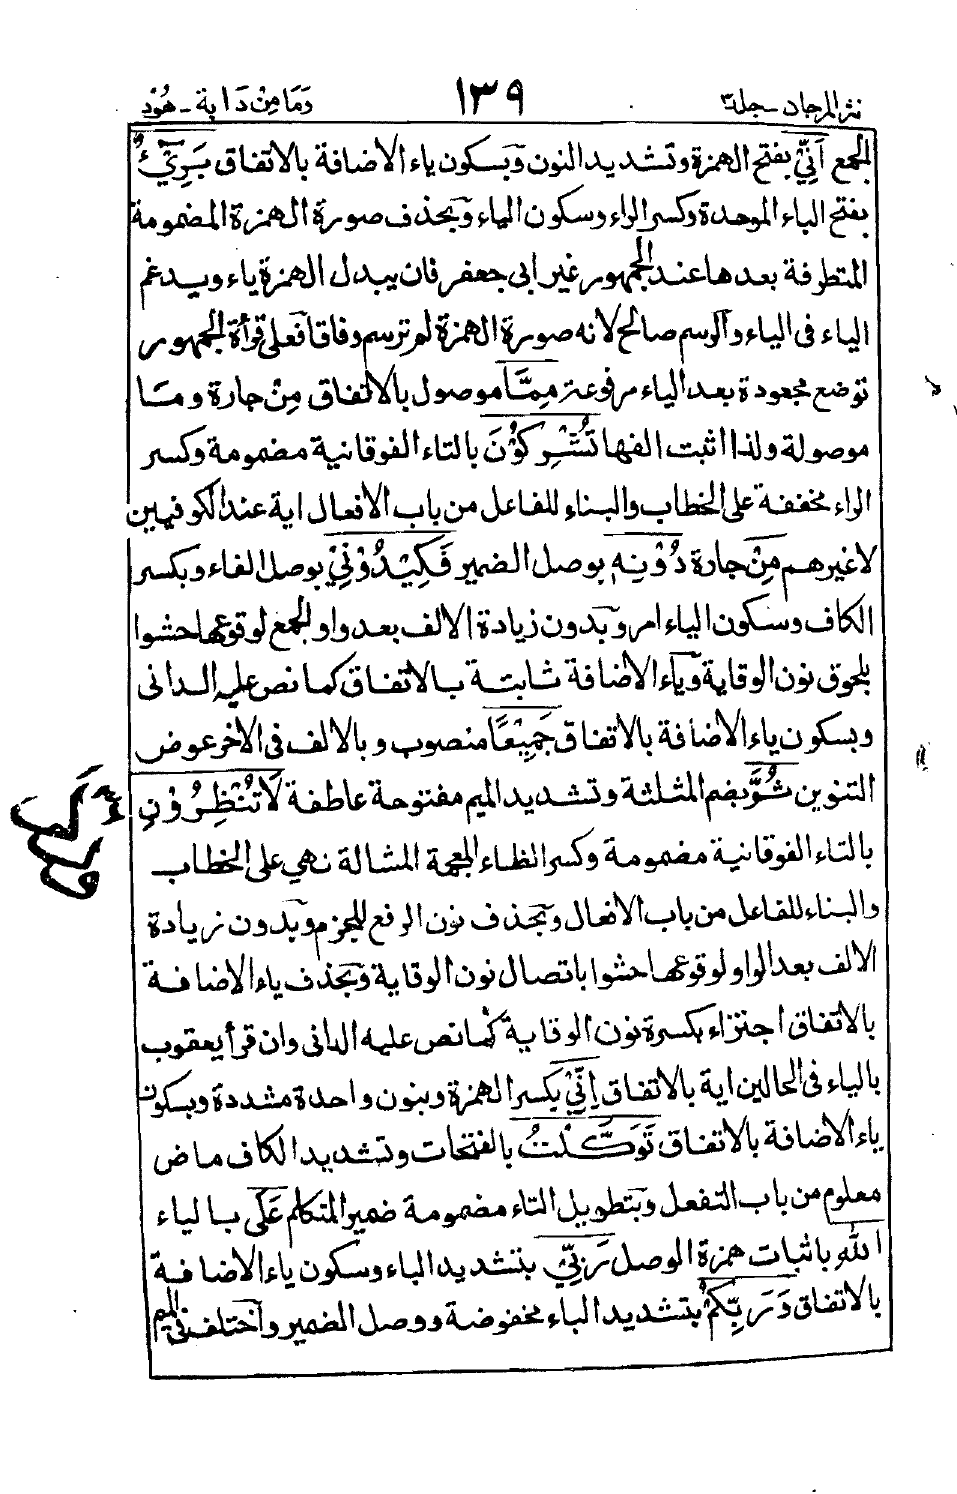 نثر المرجان - جلد ٣ ١٣٩ وَمَا مِنْ دَابة - هُوْد
الجمع اَنِّيْ بفتح الهمزة وتشديد النون وبسكون ياء الاضافة بالاتفاق بَرِيْٓءٌ
بفتح الباء الموحدة وكسر الراء وسكون الياء وبحذف صورة الهمزة المضمومة
المتطرفة بعدها عند الجمهور غير ابى جعفر فان يبدل الهمزة ياء ويدغم
الياء فى الياء والرسم صالح لانه صورة الهمزة لم ترسم وفاقا فعلى قرأة الجمهور
توضع مجعودة بعد الياء مرفوعة مِمَّا موصول بالاتفاق مِنْ جارة ومَا
موصولة ولذا اثبت الفها تُشْرِكُوْنَ بالتاء الفوقانية مضمومة وكسر
الراء مخففة على الخطاب والبناء للفاعل من باب الافعال اية عند الكوفيين
لا غيرهم مِنْ جارة دُوْنِهٖ بوصل الضمير فَكِيْدُوْنِيْ بوصل الفاء وبكسر
الكاف وسكون الياء امر وبدون زيادة الالف بعد واو الجمع لوقوعها حشوا
بلحوق نون الوقاية وياء الاضافة ثابتة بالاتفاق كما نص عليه الدانى
وبسكون ياء الاضافة بالاتفاق جَمِيْعًا منصوب وبالالف فى الاخر عوض
التنوين ثُمَّ بضم المثلثة وتشديد الميم مفتوحة عاطفة لَا تُنْظِرُوْنِ
بالتاء الفوقانية مضمومة وكسر الظاء المعجمة المشالة نهى على الخطاب
والبناء للفاعل من باب الافعال وبحذف نون الرفع للجزم وبدون زيادة
الالف بعد الواو لوقوعها حشوا باتصال نون الوقاية وبحذف ياء الاضافة
بالاتفاق اجتزاء بكسرة نون الوقاية كما نص عليه الدانى وان قرأ يعقوب
بالياء فى الحالين اية بالاتفاق اِنِّيْ بكسر الهمزة وبنون واحدة مشددة وبسكون
ياء الاضافة بالاتفاق تَوَكَّلْتُ بالفتحات وتشديد الكاف ماض
معلوم من باب التفعل وبتطويل التاء مضمومة ضمير المتكلم عَلَى بالياء
اللهِ باثبات همزة الوصل رَبِّيْ بتشديد الباء وسكون ياء الاضافة
بالاتفاق وَرَبِّكُمْ بتشديد الباء مخفوضة ووصل الضمير واختلف فى الميم